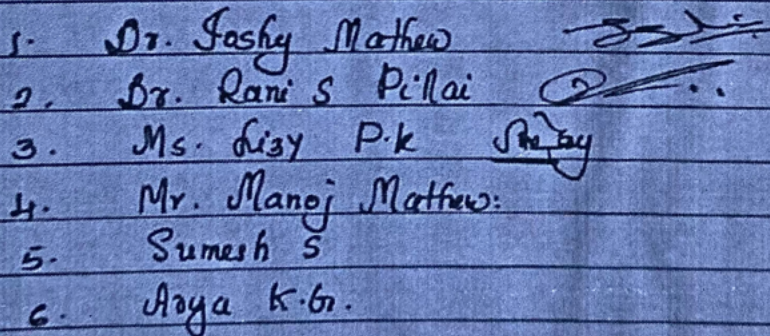 1. Dr. Joshy Mathew
2. Dr. Rani S Pillai
3. Ms. Lizy P.K
4. Mr. Manoj Mathew:
5. Sumesh S
6. Arya K.G.